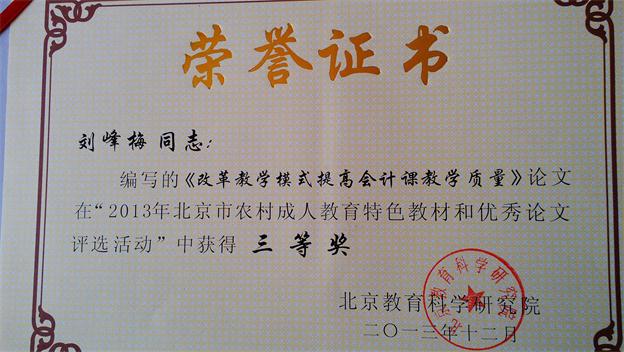 荣誉证书
刘峰梅同志：
编写的《改革教学模式提高会计课教学质量》论文
在“2013年北京市农村成人教育特色教材和优秀论文
评选活动”中获得 三等奖
北京教育科学研究院
二〇一三年十二月
北京教育科学研究院